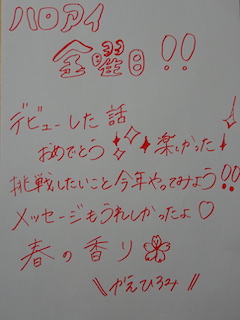 ハロアイ
金曜日!!
デビューした話
おめでとう 楽しかった
挑戦したいこと今年やってみよう!!
メッセージもうれしかったよ♡
春の香り
\\かえひろみ//